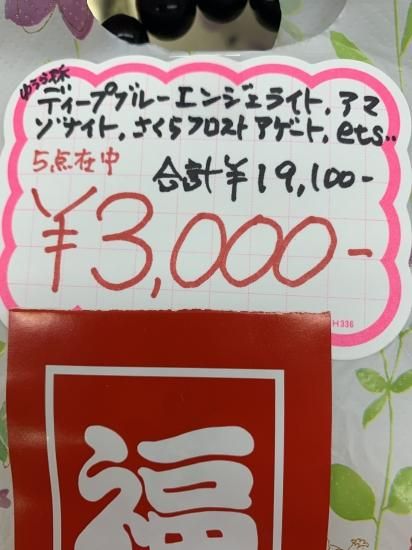 ディープブルーエンジェライト,アマ
ゾナイト,さくらフロストアゲート,ets..
5点在中
合計¥19,100-
¥3,000-
H336
福